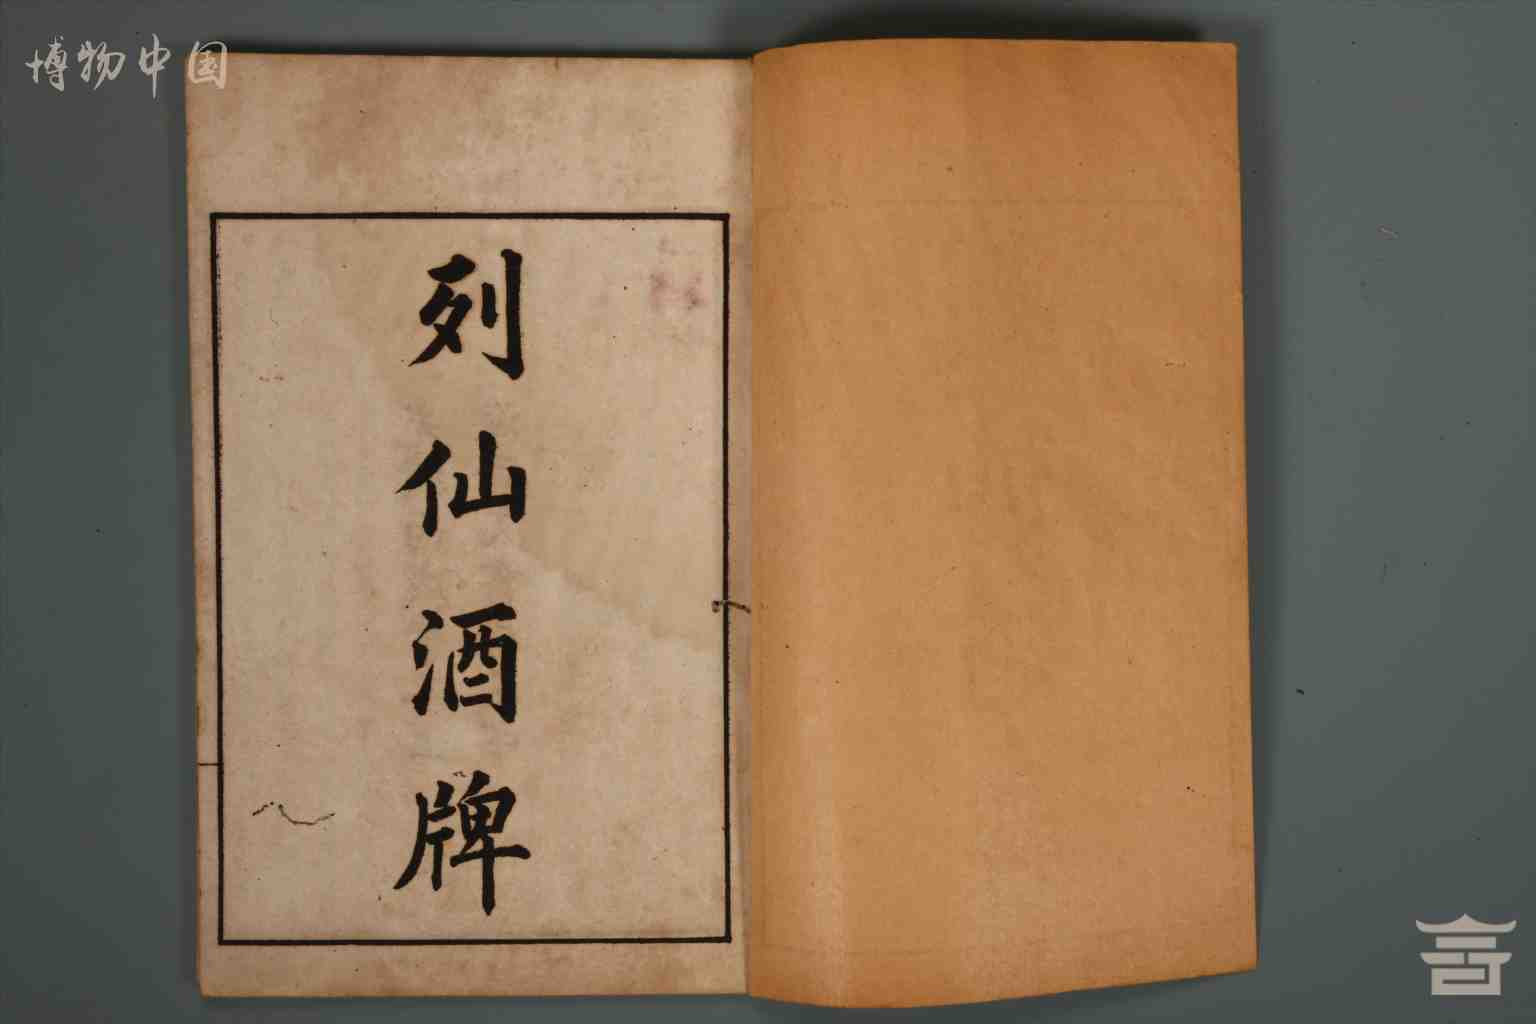 博物中国
列仙酒牌